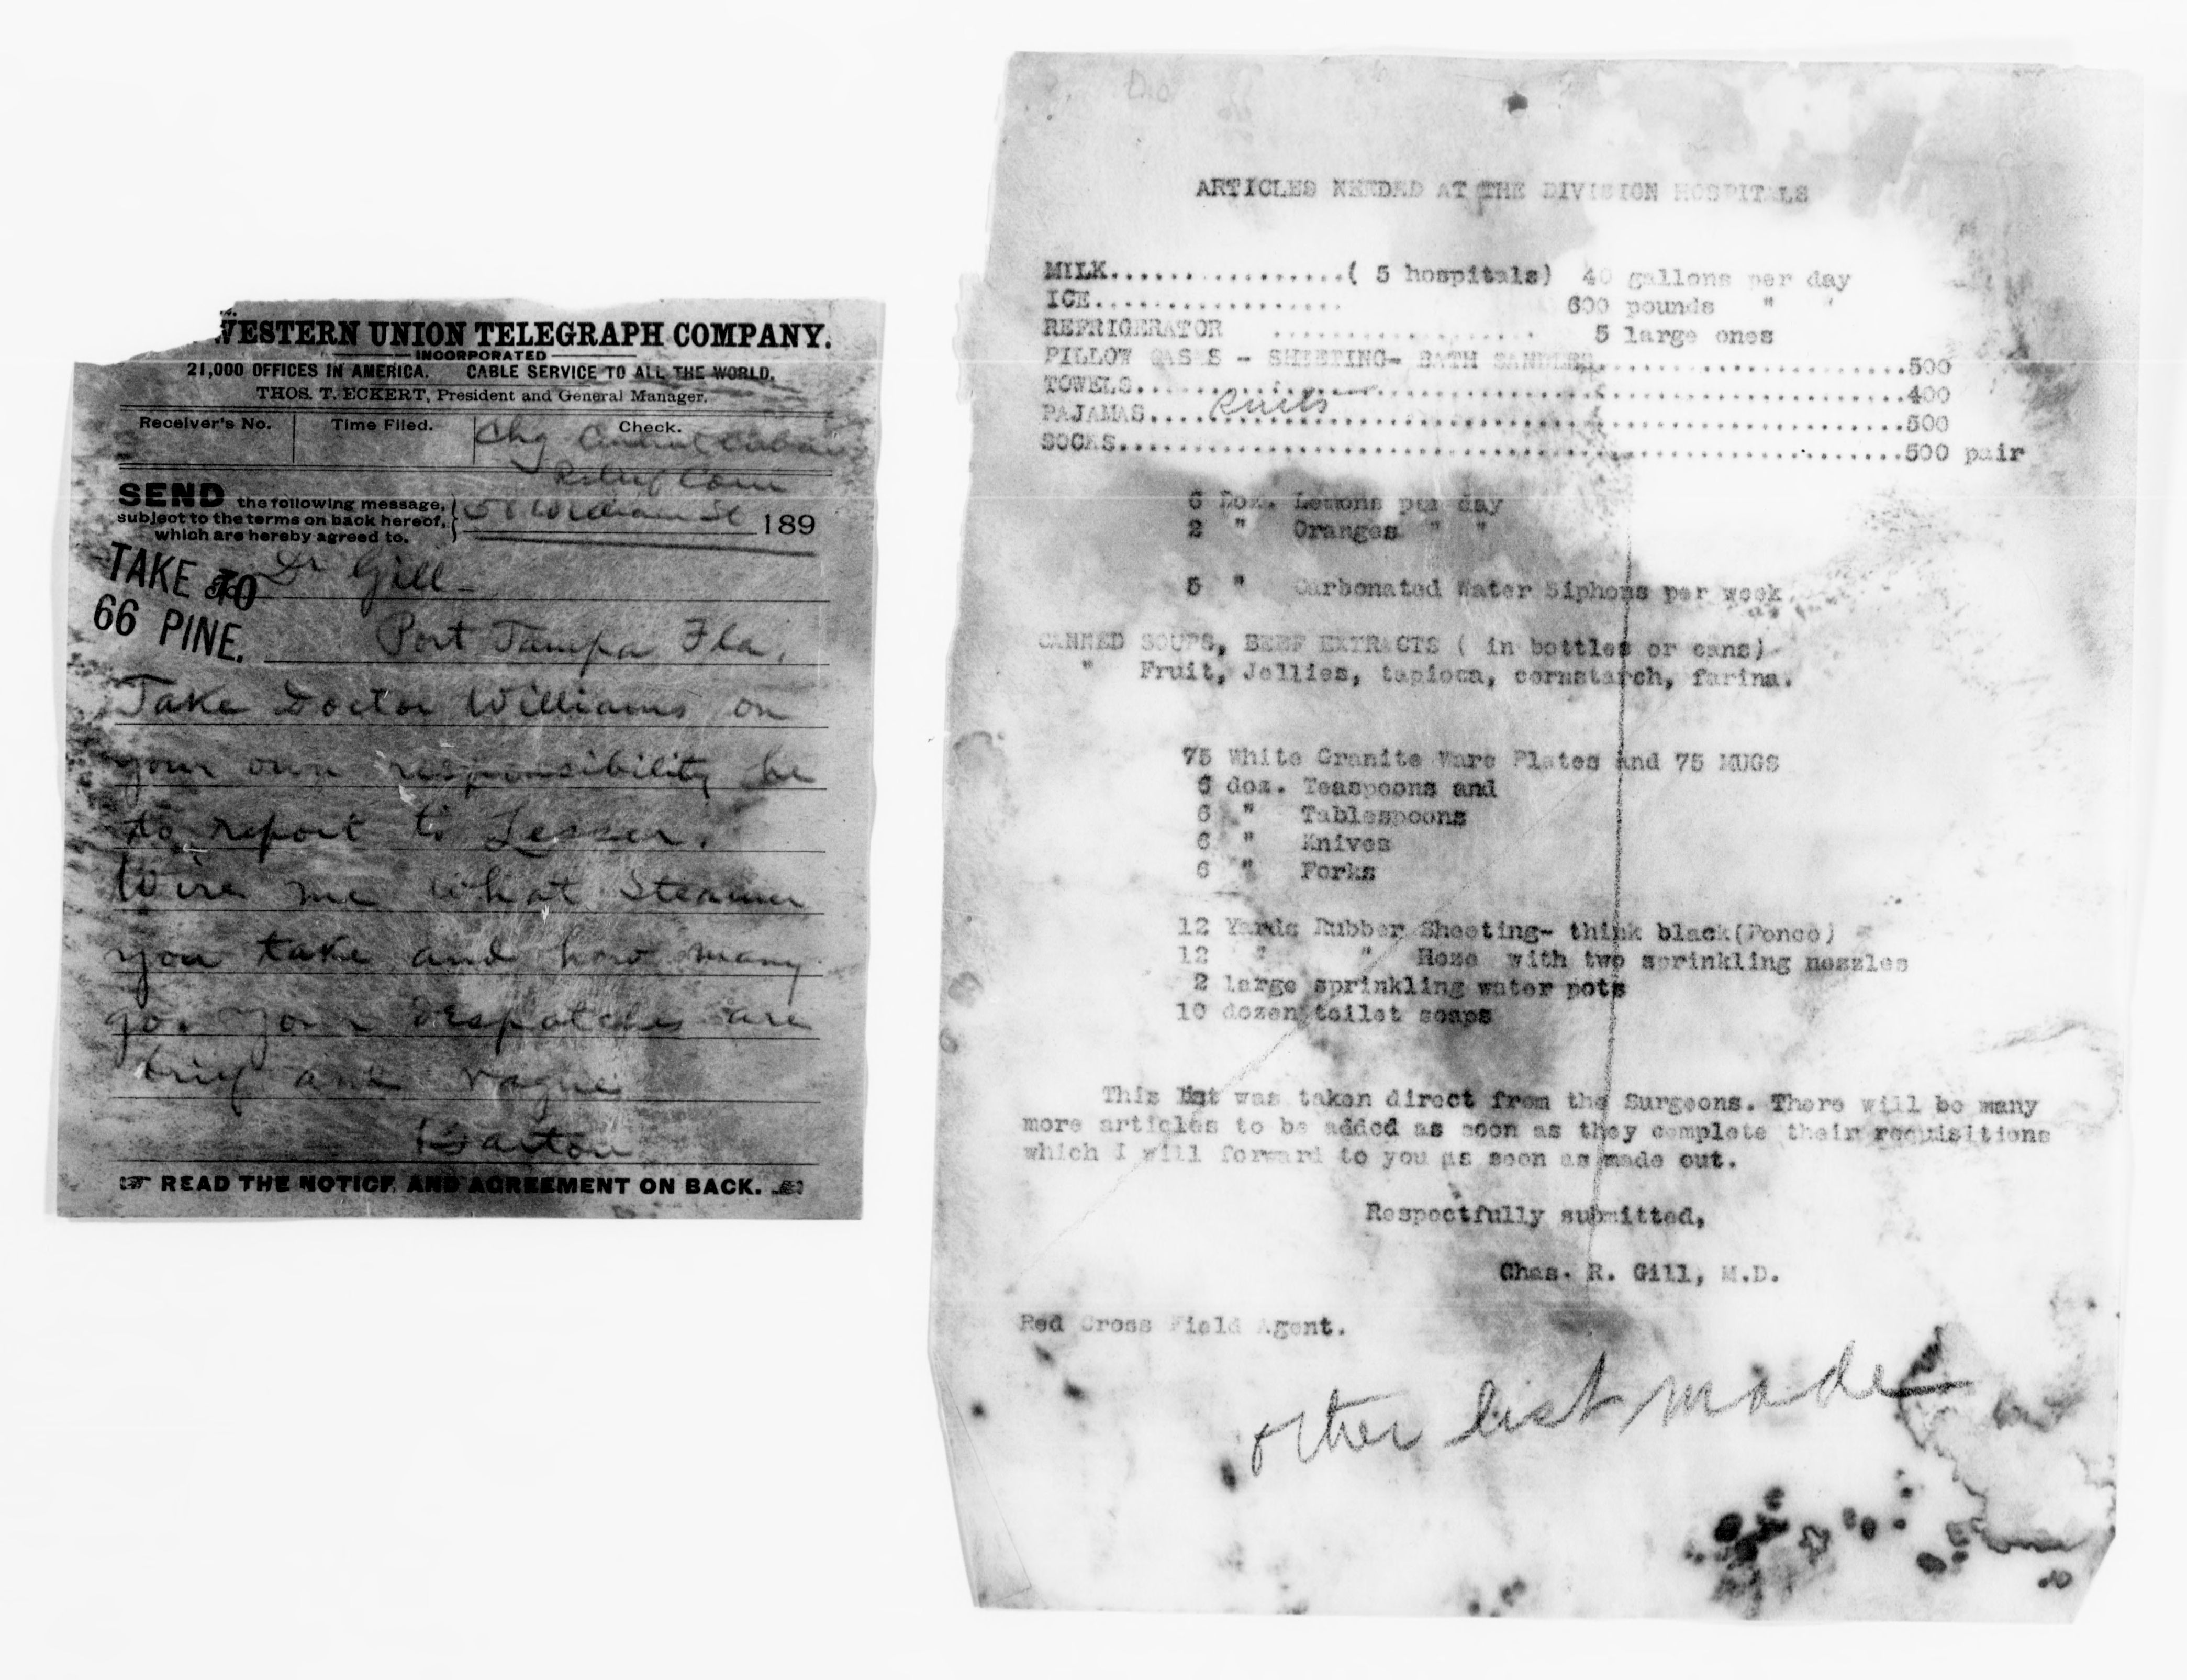 WESTERN UNION TELEGRAPH COMPANY.
INCORPORATED
21,000 OFFICES IN AMERICA. CABLE SERVICE TO ALL THE WORLD.
THOS. T. ECKERT, President and General Manager.
Receiver's No. Time Filed. Check.
Chg Central Cuban
Relief Com
SEND the following message,
subject to the terms on back hereof,
which are hereby agreed to.
58 William St 189
TAKE TO
66 PINE.
Dr Gill
Port Tampa Fla.
Take Doctor Williams on
your own responsibility he
to report to Lesser.
Wire me what Steamer
you take and how many
go. Your despatches are
brief and vague
Barton
READ THE NOTICE AND AGREEMENT ON BACK.
ARTICLES NEEDED AT THE DIVISION HOSPITALS
MILK.................( 5 hospitals) 40 gallons per day
ICE.................. 600 pounds " "
REFRIGERATOR ................... 5 large ones
PILLOW CASES - SHEETING- BATH SANDLES.......................500
TOWELS.........................................................400
PAJAMAS.... suits .............................................500
SOCKS..........................................................500 pair
6 Doz. Lemons per day
2 " Oranges " "
5 " Carbonated Water Siphons per week
CANNED SOUPS, BEEF EXTRACTS ( in bottles or cans)
" Fruit, Jellies, tapioca, cornstarch, farina.
75 White Granite Ware Plates and 75 MUGS
6 doz. Teaspoons and
6 " Tablespoons
6 " Knives
6 " Forks
12 Yards Rubber Sheeting- think black(Ponco)
12 " " Hose with two sprinkling nozzles
2 large sprinkling water pots
10 dozen toilet soaps
This list was taken direct from the Surgeons. There will be many
more articles to be added as soon as they complete their requisitions
which I will forward to you as soon as made out.
Respectfully submitted,
Chas. R. Gill, M.D.
Red Cross Field Agent.
other list made